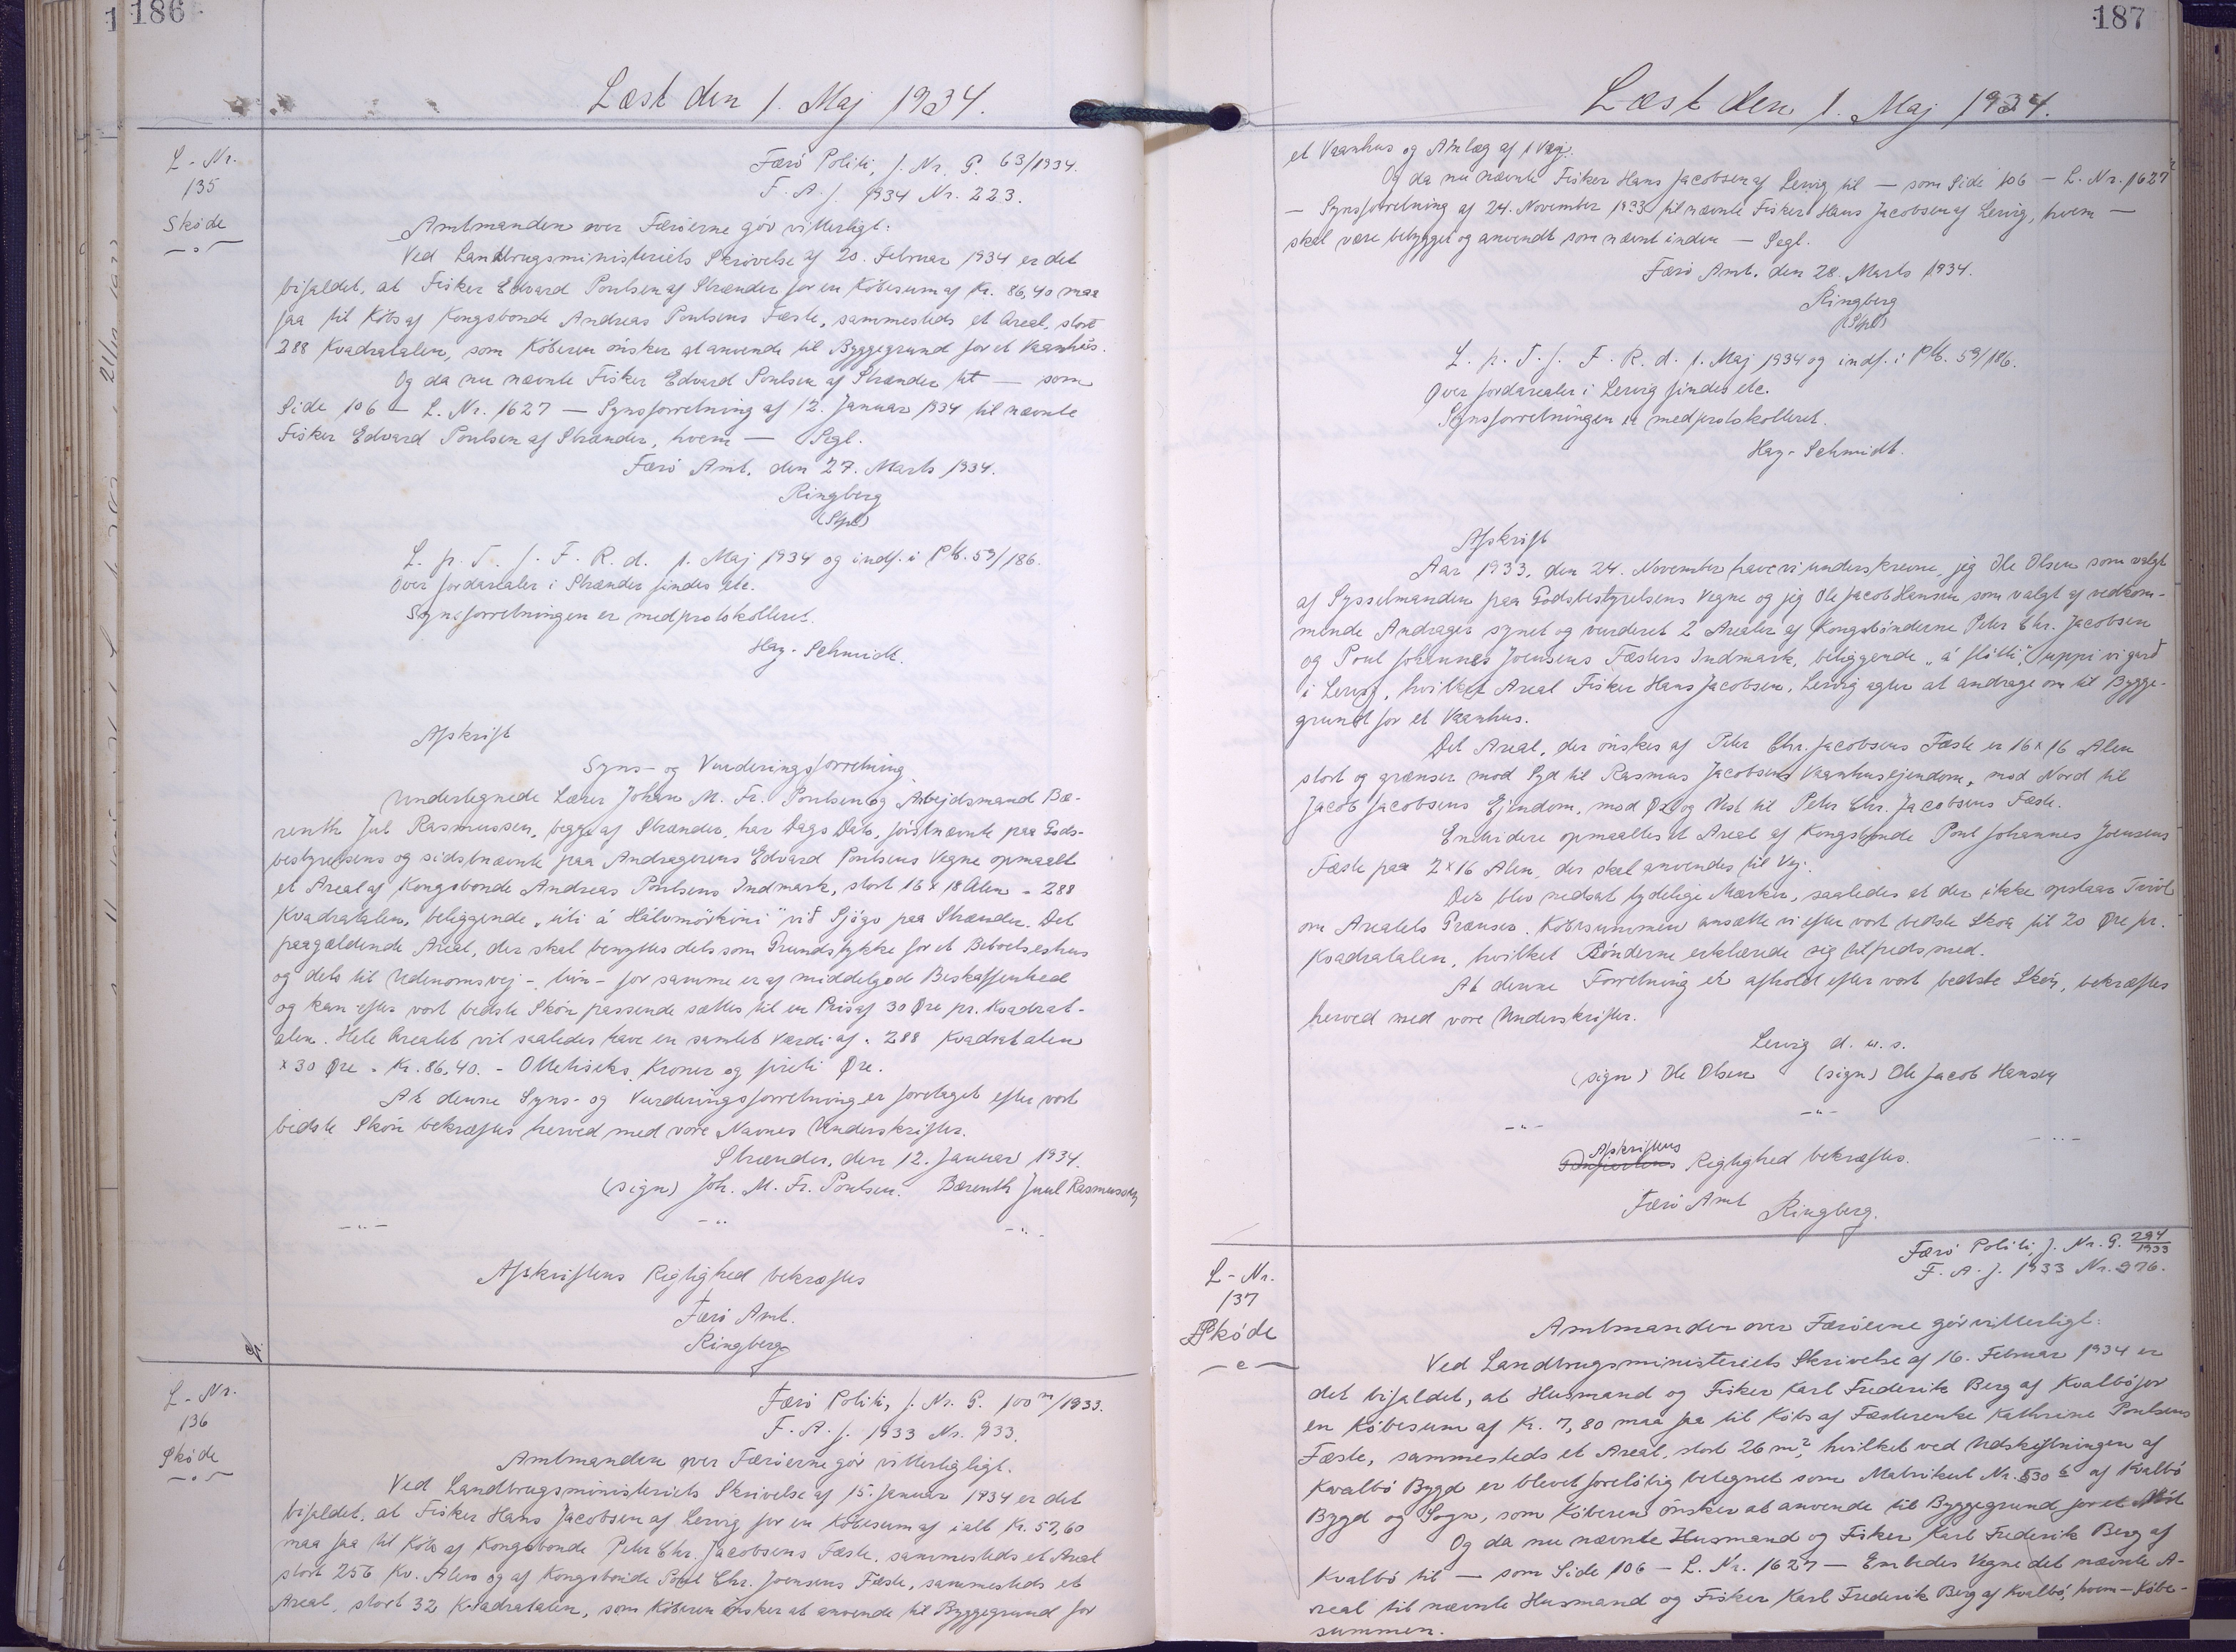 186
Læst den 1. Maj 1934.
L-Nr.
135
Skøde
Færø Politi, J. Nr. G. 63/1934.
F. A. J. 1934 Nr. 223.
Amtmanden over Færøerne gör vitterligt:
Ved Landbrugsministeriets Skrivelse af 20. Februar 1934 er det
bifaldet, at Fisker Edvard Poulsen af Strænder for en Købesum af Kr. 86,40 maa
faa til Købs af Kongsbonde Andreas Poulsens Fæste, sammesteds et Areal, stort
288 Kvadratalen, som Køberen ønsker at anvende til Byggegrund for et Vaanhus.
Og da nu nævnte Fisker Edvard Poulsen af Strænder til — som
Side 106 — L. Nr. 1627 — Synsforretning af 12. Januar 1934 til nævnte
Fisker Edvard Poulsen af Strænder, hvem — Segl.
Færø Amt, den 27. Marts 1934.
Ringberg
L. p. T. f. F. R. d. 1. Maj 1934 og indf. i P M. 59/186.
Over Jordarealer i Strænder findes etc.
Synsforretningen er medprotokolleret.
Hay-Schmidt.
Afskrift
Syns- og Vurderingsforretning.
Undertegnede Lærer Johan M. Fr. Poulsen og Arbejdsmand Bæ-
renth Jul Rasmussen, begge af Strænder, har Dags Dato, førstnævnte paa Gods-
bestyrelsens og sidstnævnte paa Andragerens Edvard Poulsens Vegne opmaalt
et Areal af Kongsbonde Andreas Poulsens Indmark, stort 16 x 18 Alen = 288
Kvadratalen, beliggende „úti á Hálvmörkini" við Sjógv paa Strænder. Det
paagældende Areal, der skal benyttes dels som Grundstykke for et Beboelseshus
og dels til Udenomsvej - tún - for samme er af middelgod Beskaffenhed
og kan efter vort bedste Skøn passende sættes til en Pris af 30 Øre pr. Kvadrat-
alen. Hele Arealet vil saaledes have en samlet Værdi af: 288 Kvadratalen
x 30 Øre = Kr. 86,40. - Ottetiseks Kroner og firti Øre.
At denne Syns- og Vurderingsforretning er foretaget efter vort
bedste Skøn bekræftes herved med vore Navnes Underskrifter.
Strænder, den 12. Januar 1934.
(sign) Joh. M. Fr. Poulsen. Bærenth Juul Rasmussen
Afskriftens Rigtighed bekræftes
Færø Amt.
Ringberg
L-Nr.
136
Skøde
Færø Politi, J. Nr. G. 100 m/1933.
F. A. J. 1933 Nr. 933.
Amtmanden over Færøerne gør vitterligligt.
Ved Landbrugsministeriets Skrivelse af 15. Januar 1934 er det
bifaldet, at Fisker Hans Jacobsen af Lervig for en Købesum af ialt Kr. 57,60
maa faa til Købs af Kongsbonde Peter Chr. Jacobsens Fæste, sammesteds et Areal
stort 256 Kv. Alen og af Kongsbonde Poul Chr. Joensens Fæste, sammesteds et
Areal, stort 32 Kvadratalen, som Køberen ønsker at anvende til Byggegrund for
187
Læst den 1. Maj 1934.
et Vaanhus og Anlæg af 1 Vej.
Og da nu nævnte Fisker Hans Jacobsen af Lervig til — som Side 106 — L. Nr. 1627
— Synsforretning af 24. November 1933 til nævnte Fisker Hans Jacobsen af Lervig, hvem —
skal være bebygget og anvendt som nævnt inden — Segl.
Færø Amt, den 28. Marts 1934.
Ringberg
L. p. T. f. F. R. d. 1. Maj 1934 og indf. i P M. 59/186.
Over Jordarealer i Lervig findes etc.
Synsforretningen er medprotokolleret.
Hay-Schmidt.
Afskrift
Aar 1933, den 24. November have vi underskrevne, jeg Ole Olsen som valgt
af Sysselmanden paa Godsbestyrelsens Vegne og jeg Ole Jacob Hansen som valgt af vedkom-
mende Andrager synet og vurderet 2 Arealer af Kongsbønderne Peter Chr. Jacobsen
og Poul Johannes Joensens Fæsters Indmark, beliggende „á fløtti", uppi við garð
i Lervig, hvilket Areal Fisker Hans Jacobsen, Lervig agter at andrage om til Bygge-
grund for et Vaanhus.
Det Areal, der ønskes af Peter Chr. Jacobsens Fæste er 16 x 16 Alen
stort og grænser mod Syd til Rasmus Jacobsens Vaanhusejendom, mod Nord til
Jacob Jacobsens Ejendom, mod Øst og Vest til Peter Chr. Jacobsens Fæste.
Endvidere opmaaltes et Areal af Kongsbonde Poul Johannes Joensens
Fæste paa 2 x 16 Alen, der skal anvendes til Vej.
Der blev nedsat tydelige Mærker, saaledes at der ikke opstaar Tvivl
om Arealets Grænser. Købesummen ansætte vi efter vort bedste Skøn til 20 Øre pr.
Kvadratalen, hvilket Bønderne erklærede sig tilfreds med.
At denne Forretning er afholdt efter vort bedste Skøn, bekræftes
herved med vore Underskrifter.
Lervig d. u. s.
(sign) Ole Olsen (sign) Ole Jacob Hansen
Afskriftens
Rigtighed bekræftes.
Færø Amt Ringberg.
L-Nr.
137
Skøde
Færø Politi, J. Nr. G. 294/1933
F. A. J. 1933 Nr. 976.
Amtmanden over Færøerne gør vitterligt:
Ved Landbrugsministeriets Skrivelse af 16. Februar 1934 er
det bifaldet, at Husmand og Fisker Karl Frederik Berg af Kvalbø for
en Købesum af Kr. 7,80 maa faa til Købs af Fæsterenke Kathrine Poulsens
Fæste, sammesteds et Areal, stort 26 m², hvilket ved Udskiftningen af
Kvalbø Bygd er blevet foreløbig betegnet som Matrikul Nr. 830 b af Kvalbø
Bygd og Sogn, som Køberen ønsker at anvende til Byggegrund for et
Og da nu nævnte Husmand og Fisker Karl Frederik Berg af
Kvalbø til — som Side 106 — L. Nr. 1627 — Embedes Vegne det nævnte A-
real til nævnte Husmand og Fisker Karl Frederik Berg af Kvalbø, hvem — Købe-
summen.